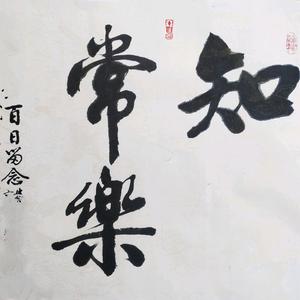 知
常樂
百日留念